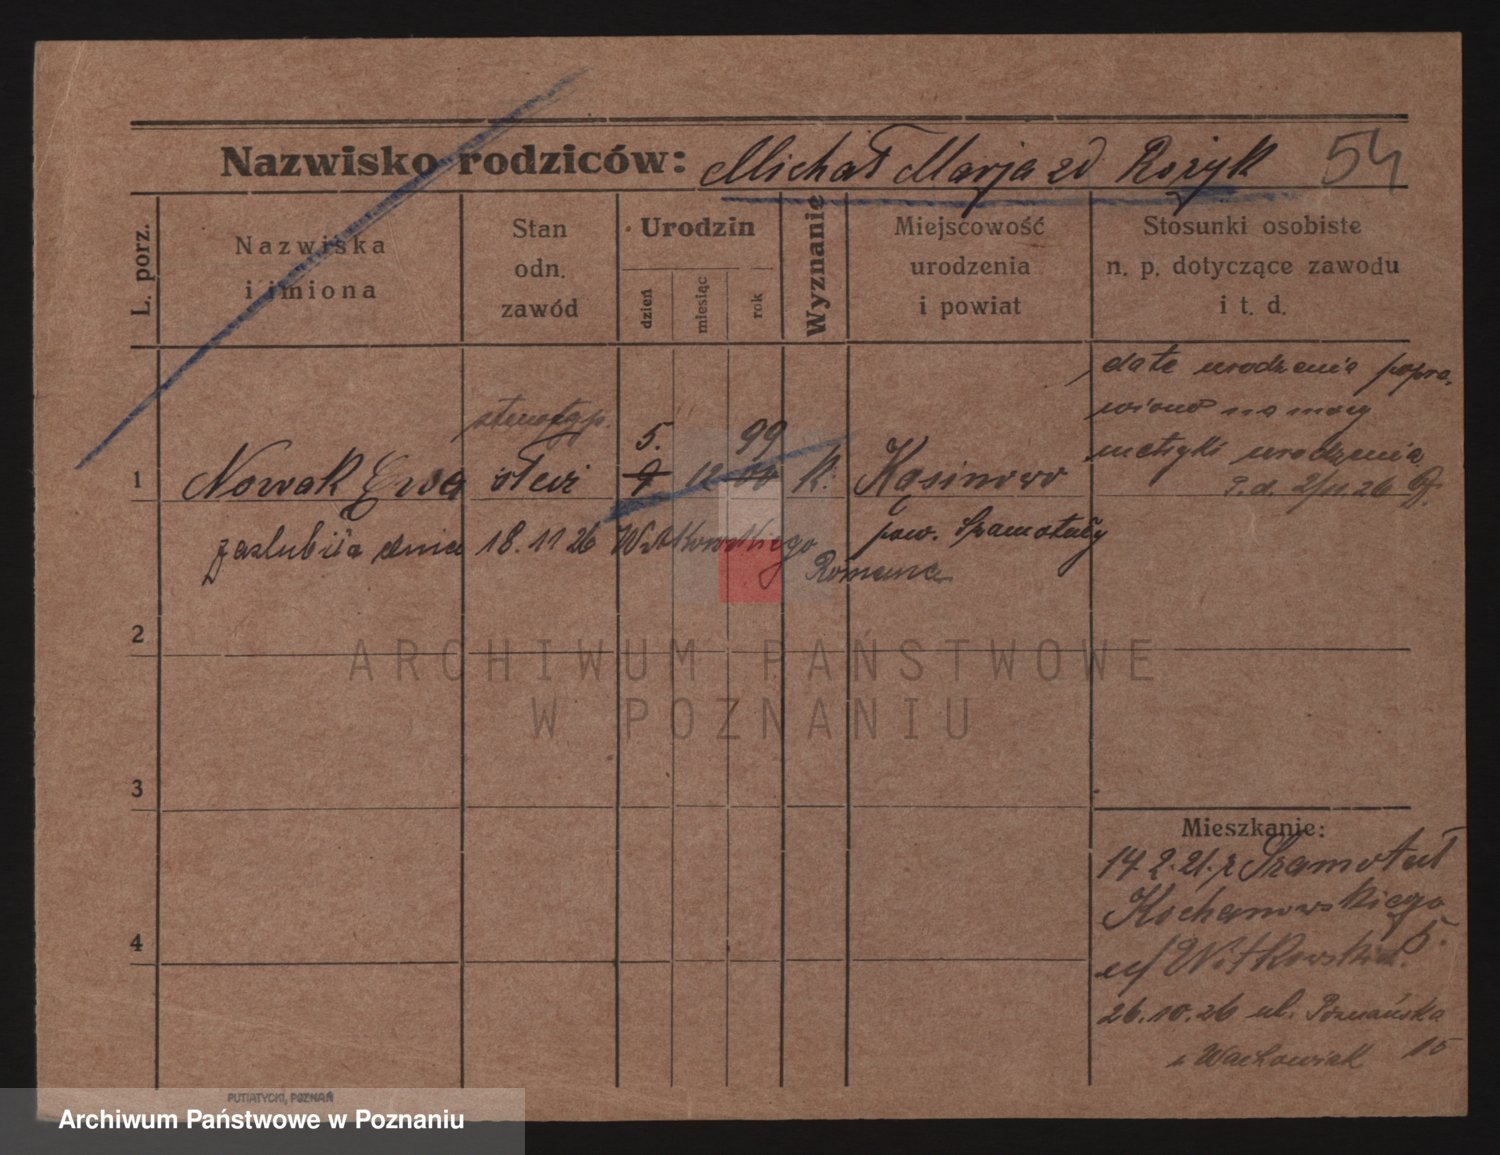 Nazwisko rodziców: Michał Marja zd Rożyk 54
L. porz.
Nazwiska
i imiona
Stan
odn.
zawód
Urodzin
dzień
miesiąc
rok
Wyznanie
Miejscowość
urodzenia
i powiat
Stosunki osobiste
n. p. dotyczące zawodu
i t. d.
date urodzenia popra-
wiono na mocy
metryki urodzenia
P. d. 2/11 26
stenotyp. 5. 99
1 Nowak Ewa 9 12 00 k. Kąsinowo
zaślubiła dnia 18.11 26 Witkowskiego pow. Szamotuły
Romana
2
3
4
Mieszkanie:
14 2. 21. z Szamotuł
Kochanowskiego
5.
u/ Witkowskich.
26.10.26 ul. Poznańska
u Wachowiak 15
ARCHIWUM PAŃSTWOWE
W POZNANIU
PUTIATYCKI, POZNAŃ
Archiwum Państwowe w Poznaniu